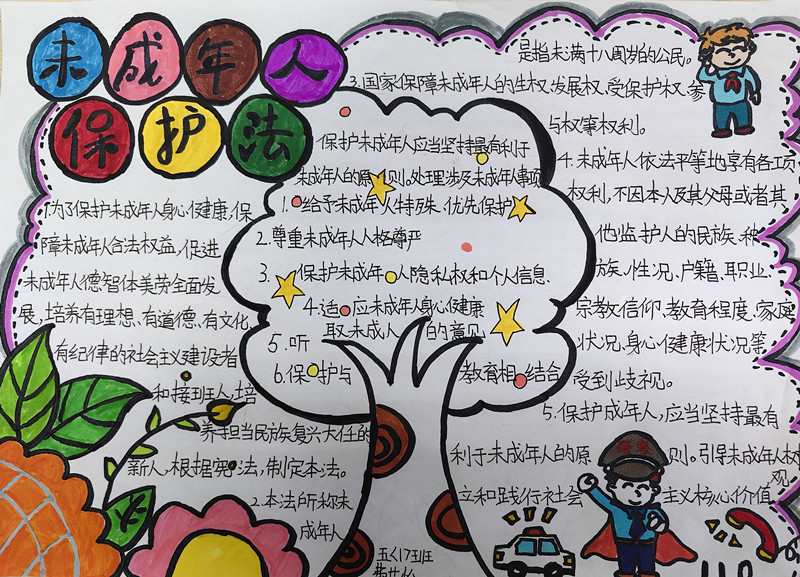 未成年人
保护法
1.为了保护未成年人身心健康,保
障未成年人合法权益,促进
未成年人德智体美劳全面发
展,培养有理想、有道德、有文化、
有纪律的社会主义建设者
和接班人,培
养担当民族复兴大任的
新人,根据宪法,制定本法。
2.本法所称未
成年人
是指未满十八周岁的公民。
3.国家保障未成年人的生权、发展权、受保护权、参
与权等权利。
4.未成年人依法平等地享有各项
权利,不因本人及其父母或者其
他监护人的民族、种
族、性况、户籍、职业、
宗教信仰、教育程度、家庭
状况、身心健康状况等
受到歧视。
5.保护成年人,应当坚持最有
利于未成年人的原则。引导未成年人树
立和践行社会主义核心价值
观
保护未成年人应当坚持最有利于
未成年人的原则。处理涉及未成年人事项
1.给予未成年人特殊、优先保护
2.尊重未成年人人格尊严
3.保护未成年人隐私权和个人信息、
4.适应未成年人身心健康
5.听取未成人的意见
6.保护与教育相结合
五〈17班
110